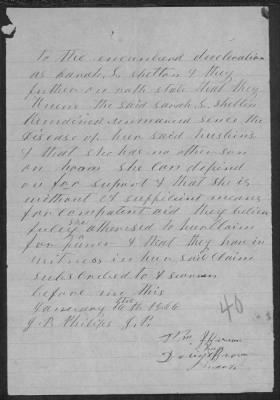 To the incumbrend declaration
as Sarah S Shelton & they
further on oath state that they
Know the said Sarah S. Shelton
Remained unmaried since the
Disease of her said husbing
& that she has no other son
on hoom she can depend
on for suport & that she is
without a sufficient means
for comfortant aid they belien
fuley athorised to her claim
for pinsen & that they have in
witness in her said claim
subscribed to & sworn
before me this
January the 16th 1866
J. P. Philips J. P.
40
Brown